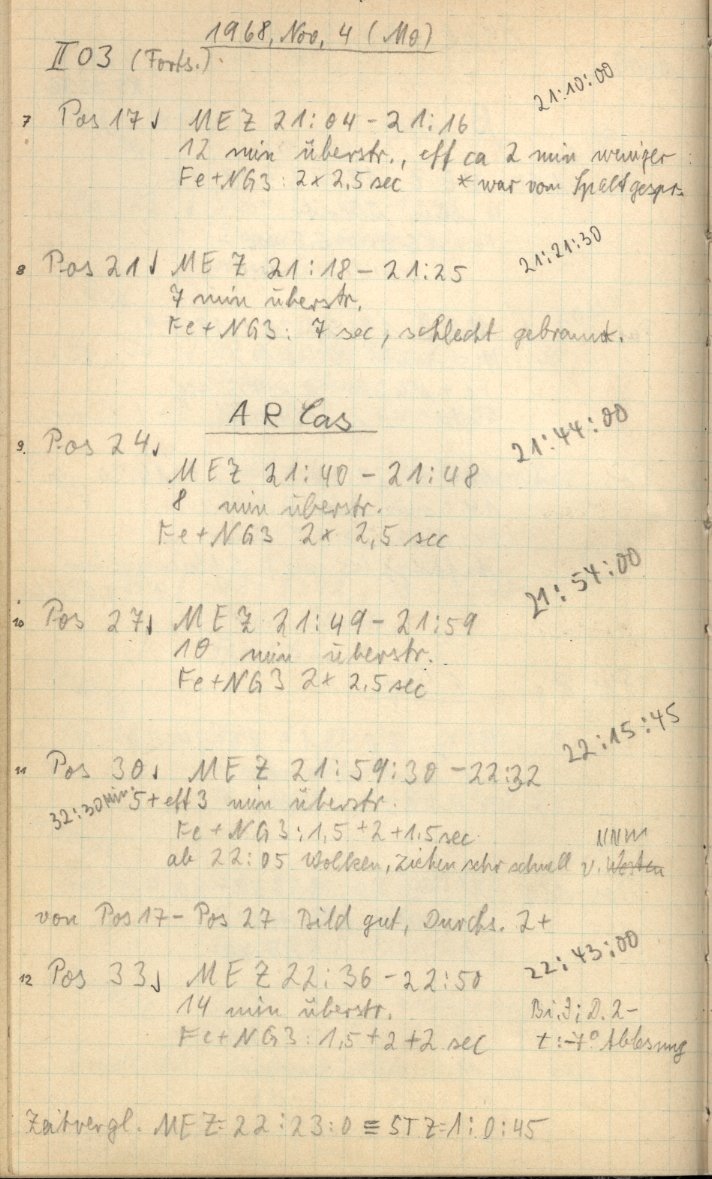 1968, Nov, 4 (Mo)
II 03 (Forts.)
21:10:00
7 Pos 17↓ MEZ 21:04 - 21:16
12 min überstr., eff ca 2 min weniger
Fe+NG3: 2x2,5 sec * war vom Spalt gespr.
21:21:30
8 Pos 21↓ MEZ 21:18 - 21:25
7 min überstr.
Fe+NG3: 7 sec, schlecht gebrannt.
AR Cas
21:44:00
9. Pos 24↓
MEZ 21:40 - 21:48
8 min überstr.
Fe+NG3 2x 2,5 sec
21:54:00
10 Pos 27↓ MEZ 21:49 - 21:59
10 min überstr.
Fe+NG3 2x 2,5 sec
22:15:45
11 Pos 30↓ MEZ 21:59:30 - 22:32
32:30 min: 5+eff 3 min überstr.
Fe+NG3: 1,5+2+1,5 sec
NNW
ab 22:05 Wolken, ziehen sehr schnell v. Westen
von Pos 17 - Pos 27 Bild gut, Durchs. 2+
22:43:00
12 Pos 33↓ MEZ 22:36 - 22:50
14 min überstr. Bi.3; D. 2-
Fe+NG3: 1,5+2+2 sec t:-7° Ablesung
Zeitvergl. MEZ=22:23:0 ≡ STZ=1:0:45